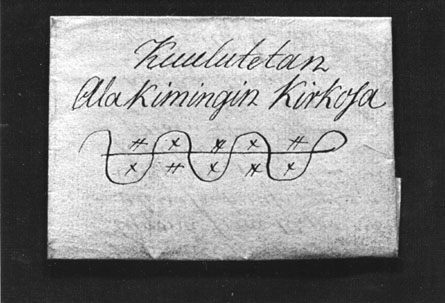 Kuulutetan
Ala Kimingin Kirkosa